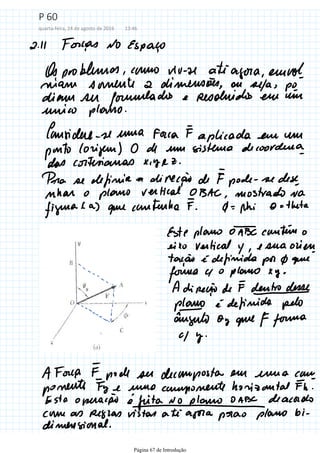 P 60
quarta-feira, 24 de agosto de 2016 13:46
2.11 Forças no Espaço
Os problemas, como viu-se até agora, envol
viam somente 2 dimensões, ou seja, po
diam ser formulados e Resolvidos em um
unico plano.
Considere-se uma Força F aplicada em um
ponto (origem) O de um sistema de coordena
das cartesianas x, y e z.
Para se definir a direção de F pode-se dese
nhar o plano vertical OBAC, mostrado na
figura (a) que contenha F. ϕ = phi θ = theta
Este plano OABC contém o
eixo vertical y, e sua orien
tação é definida por ϕ que
forma c/ o plano xy.
A direção de F dentro desse
plano é definida pelo
ângulo θy que F forma
c/ y.
y
B
A
θy
F
O
x
ϕ
C
z
(a)
A Força F pode ser decomposta em uma com
ponente Fy e uma componente horizontal Fh.
Esta operação é feita no plano OABC de acordo
com as Regras vistas até agora para o plano bi-
dimensional.
Página 67 de Introdução